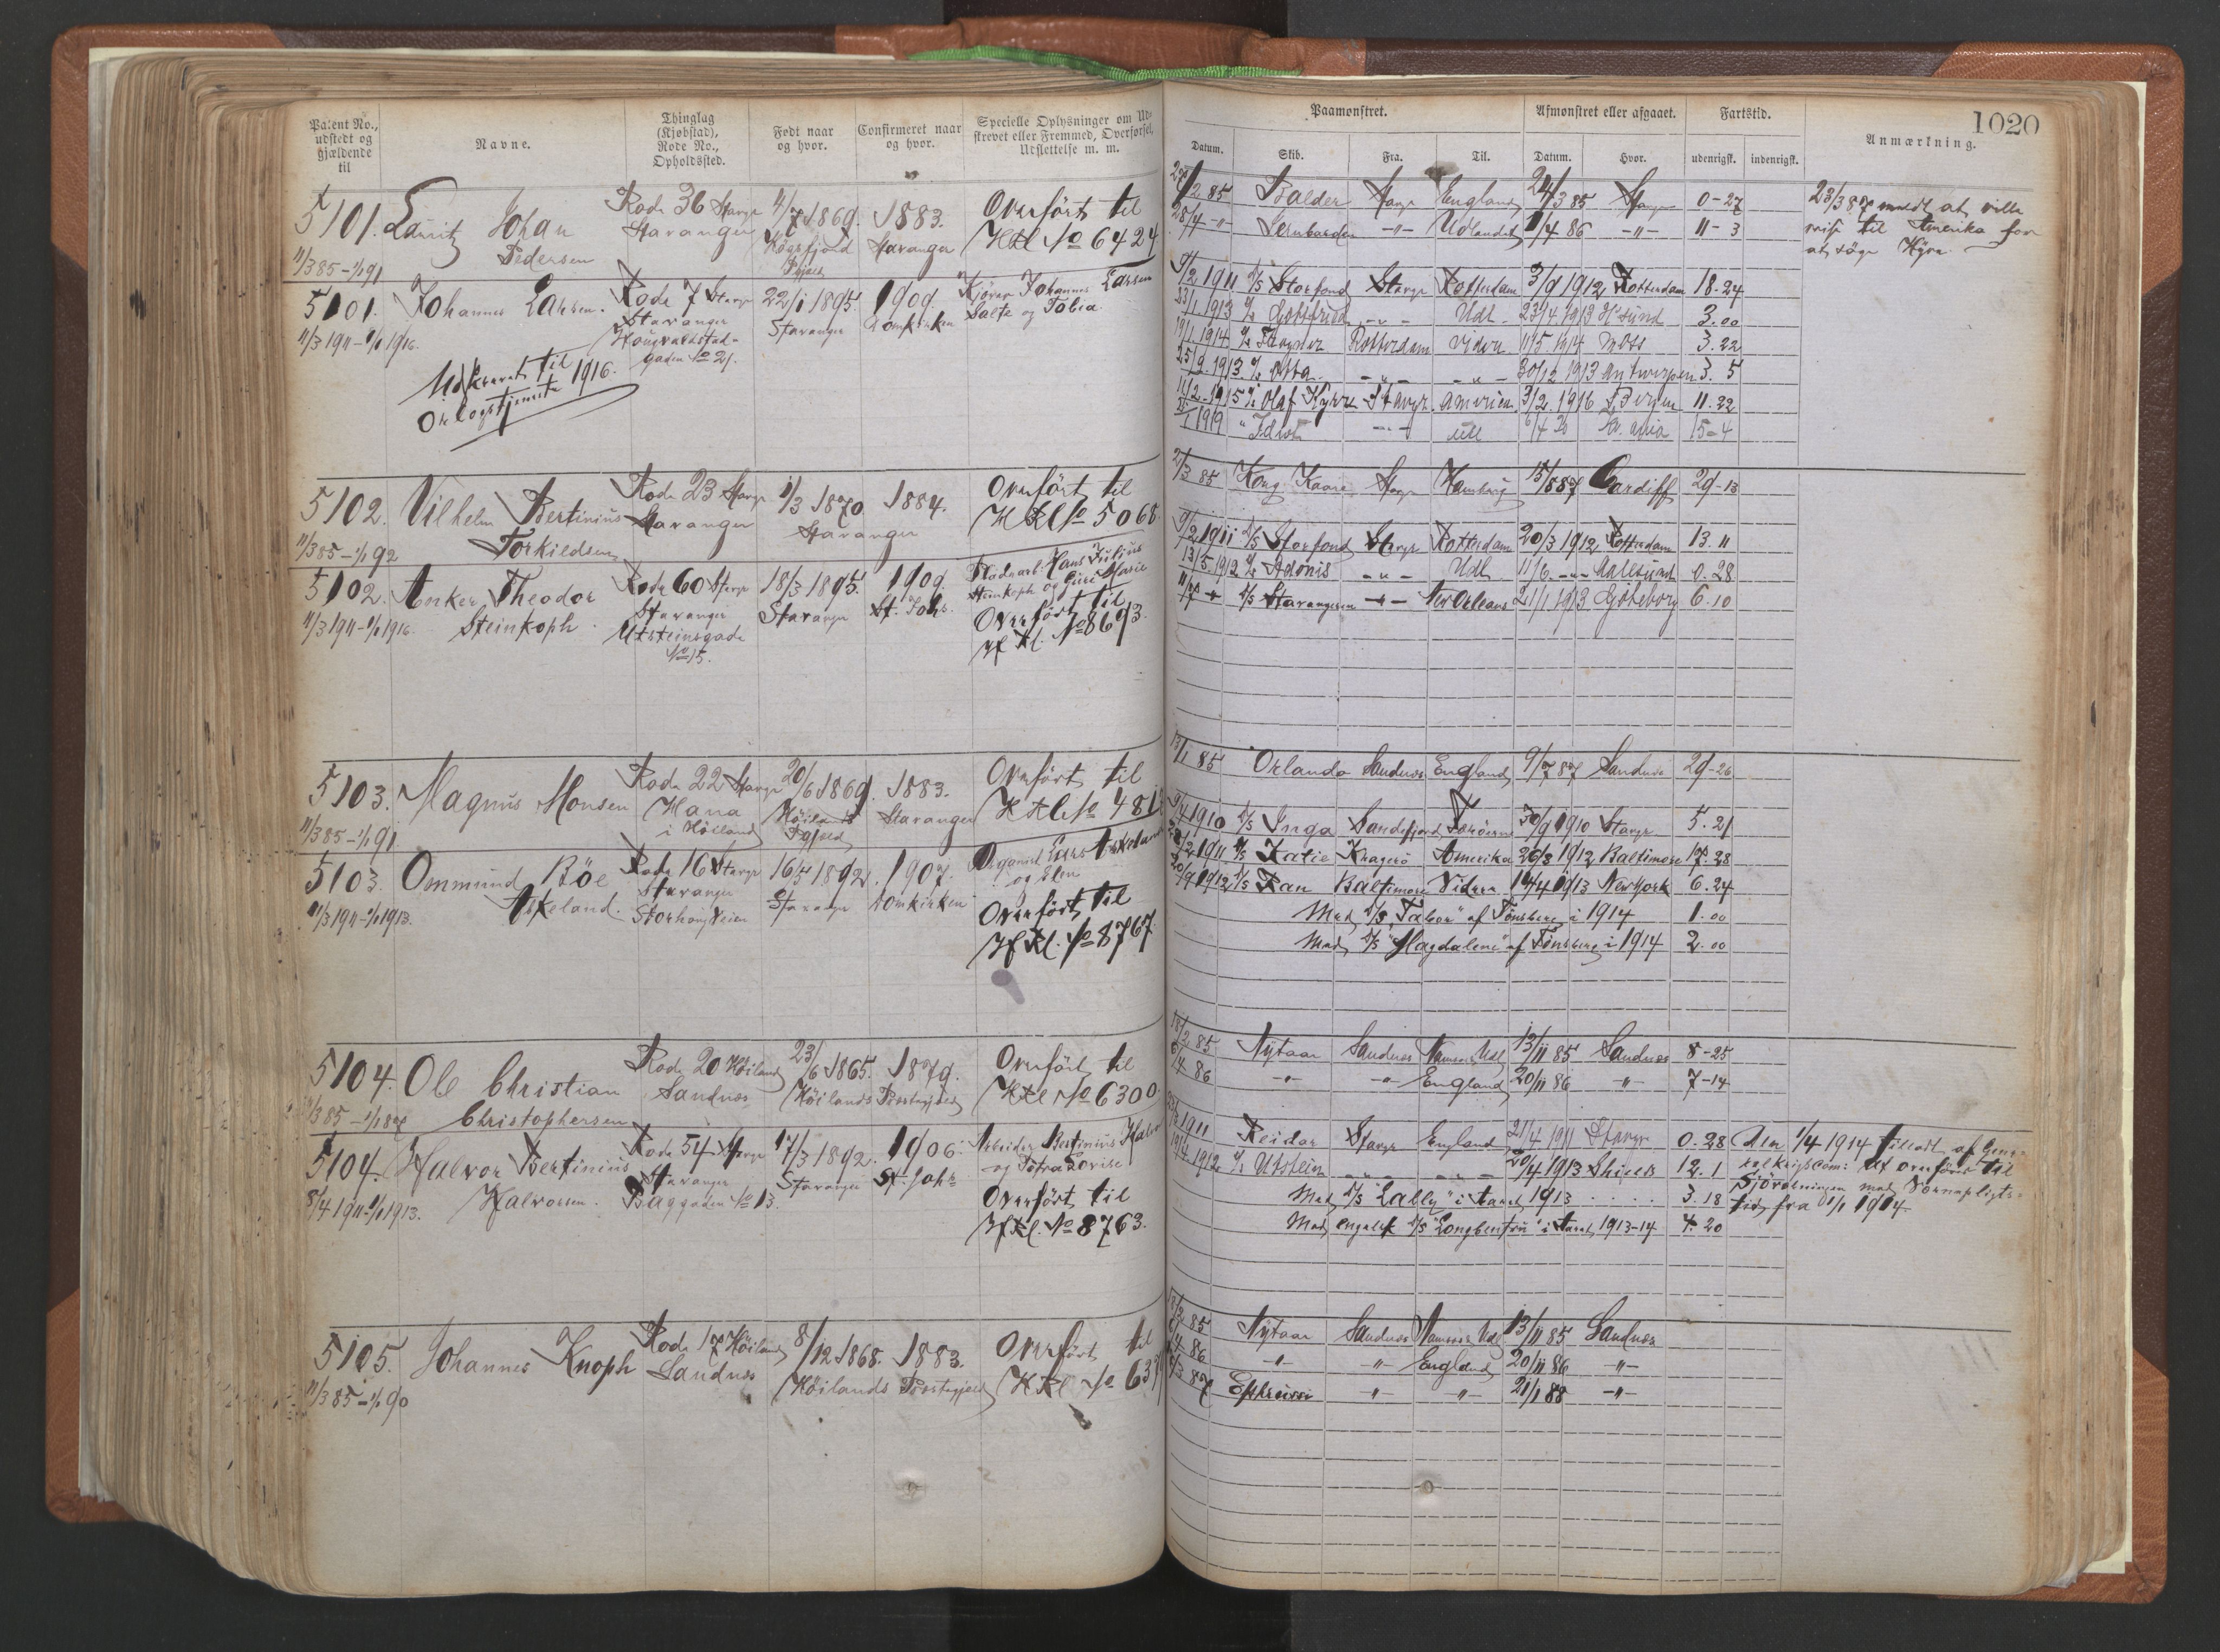 1020
Patent No., udstedt og gjældende til
Navne.
Thinglag (Kjøbstad), Rode No., Opholdssted.
Født naar og hvor.
Confirmeret naar og hvor.
Specielle Oplysninger om Udskrevet eller Fremmed, Overførsel, Udslettelse m. m.
Paamønstret.
Afmønstret eller afgaaet.
Fartstid.
Anmærkning.
Datum. Skib. Fra. Til. Datum. Hvor. udenrigsk. indenrigsk.
5101. Lauritz Johan Pedersen
11/3 85 – 1/1 91
Rode 36 Stavgr Stavanger
4/7 1869. Högsfjord
1883. Stavanger
Overført til HKl No 6424
2 85 Balder Stavgr England 24/3 85 Stavgr 0-27
28/4 -"- Jernbarden -"- Udlandet 1/4 86 -"- 11-3
23/3 87 meldt at ville
reise til Amerika for
at søge Hyre
5101. Johannes Larsen.
11/3 1911 – 1/1 1916.
Rode 7 Stavgr Stavanger
gaden No 21.
22/1 1895. Stavanger
1909. Domkirken
Kjører Johannes Larsen
Salte og Tobia.
Udskrevet til
Orlogstjeneste 1916.
9/2 1911 D/S Storfond Stavgr Rotterdam 3/9 1912 Rotterdam 18.24
23/1 1913 Gottfried -"- Udl. 23/4 1913 3.00
19/1 1914 Rotterdam viden 11/5 1914 Moss 3.22
25/9 1913 -"- -"- 30/12 1913 Antwerpen 3. 5
1915 Olaf Kyrre Stavgr. Amerika 3/2 1916 Bergen 11.22
1919 -"- Udl 15-4
5102. Vilhelm Bertinius Torkildsen
11/3 85 – 1/1 92
Rode 23 Stavgr Stavanger
1/3 1870 Stavanger
1884.
Overført til HKl No 5068
2/3 85 Kong Kaare Stavgr Hamburg 15/8 87 Cardiff 29-13
5102. Anker Theodor Steinkoph.
11/3 1911 – 1/1 1916.
Rode 60 Stavgr Stavanger Utsteinsgade No 15.
18/3 1895. Stavanger
1909. St. Johs.
Hans Julius
Steinkoph og Guri Marie
Overført til Hf Kl. No 8693.
9/2 1911 D/S Storfond Stavgr Rotterdam 20/3 1912 Rotterdam 13.11
13/5 1912 Adonis -"- Udl. 11/6 -"- Aalesund 0.28
11/7 -"- D/S Stavangeren -"- New Orleans 21/1 1913 Göteborg 6.10
5103. Magnus Monsen
11/3 85 – 1/1 91
Rode 22 Stavgr Hana i Höiland
20/6 1869. Höilands
1883. Stavanger
Overført til HKl No 481
13/1 85 Orlando Sandnes England 9/7 87 Sandnes 29-26
5103. Ommund Böe Askeland.
11/3 1911 – 1/1 1913.
Rode 16 Stavgr Stavanger Storhougveien
16/5 1892. Stavanger
1907. Domkirken
og Elen
Overført til Hf Kl. No 8767.
1910 D/S Inga Sandefjord Færöerne 30/9 1910 Stavgr 5.21
2 1911 D/S Katie Kragerö Amerika 26/8 1912 Baltimore 17.28
20/9 1912 D/S Ran Baltimore Videre 14/4 1913 New York 6.24
Med D/S "Tabor" af Tönsberg i 1914 1.00
Med D/S "Magdalene" af Tönsberg i 1914 2.00
5104. Ole Christian Christophersen
3 85 – 1/1 87
Rode 20 Höiland Sandnes
23/6 1865. Höilands Præstegjæld
1879.
Overført til HKl No 6300.
18/2 85 Nytaar Sandnes Namsos Udl 13/11 85 Sandnes 8-25
4 86 -"- -"- England 20/11 86 -"- 7-14
5104. Halvor Bertinius Halvorsen.
8/4 1911 – 1/1 1913.
Rode 54 Stavgr Stavanger Baggaden No 13.
17/3 1892. Stavanger
1906. St. Johs
Arbeider Bertinius Halvor
og Petra Lovise
Overført til Hf Kl. No 8763.
1911 Reidar Stavgr England 21/4 1911 Stavgr 0.28
19/4 1912 Utstein -"- -"- 20/4 1913 Shields 12.1
Med D/S "Lally" i Aaret 1913 . . . . 3.18
Med engelsk D/S i Aaret 1913-14 4.20
Den 1/4 1914 tilladt af Gene-
ralkrigscom: at overføres til
Sjörulningen med Værnepligts-
tid fra 1/1 1914.
5105. Johannes Knoph
11/3 85 – 1/1 90
Rode 17 Höiland Sandnes
8/12 1868. Höilands Præstegjæld
1883.
Overført til HKl No 633
2 85 Nytaar Sandnes Namsos Udl 13/11 85 Sandnes
4 86 -"- -"- England 20/11 86 -"-
3 87 -"- -"- 21/1 88 -"-